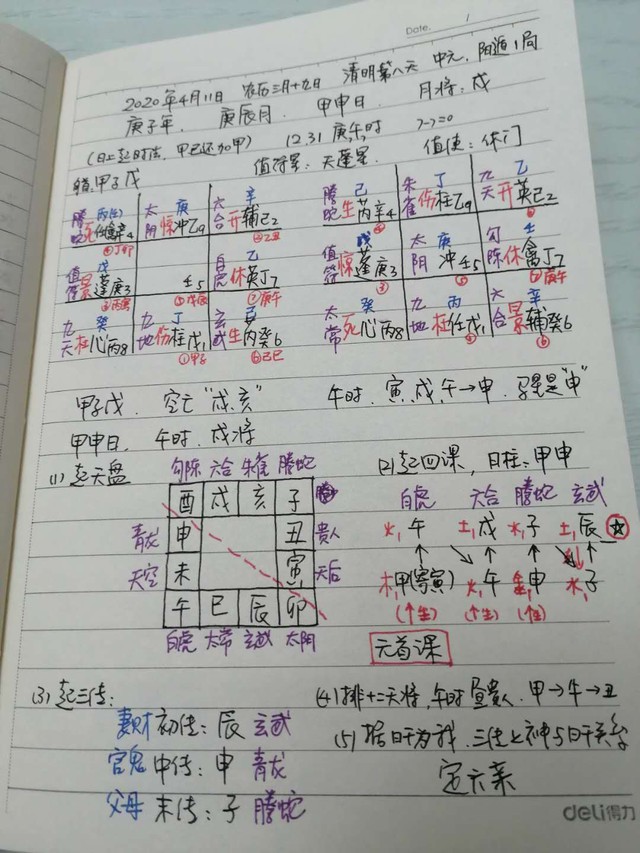 Date.
2020年4月11日 农历三月十九日 清明第八天 中元,阳遁1局
庚子年、庚辰月、甲申日、月将:戌
(日上起时法,甲己还加甲) 12:31 庚午时 7-7=0
值符星:天蓬星、值使:休门
甲子戊
腾蛇 丙 4
太阴 庚 惊冲乙9
六合 辛 开辅己2
值符 戊 景蓬庚3
壬5
白虎 乙 休英丁7
九天 癸 杜心丙8
九地 丁 伤柱戊1
玄武 己 生芮癸6
腾蛇 己 生芮辛4
朱雀 丁 伤柱乙9
九天 乙 开英己2
值符 戊 惊蓬庚3
太阴 庚 冲壬5
勾陈 休禽丁7
太常 癸 死心丙8
九地 丙 杜任戊1
六合 辛 景辅癸6
甲子戊、空亡"戌、亥" 午时、寅、戌、午→申、马星是"申"
甲申日、午时、戌将
(1)起天盘
勾陈 六合 朱雀 腾蛇
酉 戌 亥 子
青龙 申 丑 贵人
天空 未 寅 天后
午 巳 辰 卯
白虎 太常 玄武 太阴
(2)起四课,日柱:甲申
白虎 六合 腾蛇 玄武
火,午 土,戌 水,子 土,辰
木,甲(寄寅) 火,午 金,申 水,子
(↑生) (↑生) (↑生)
元首课
(3)起三传:
妻财 初传:辰 玄武
官鬼 中传:申 青龙
父母 末传:子 腾蛇
(4)排十二天将,午时昼贵人,甲→午→丑
(5)据日干为我,三传上神与日干关系
定六亲
deli得力